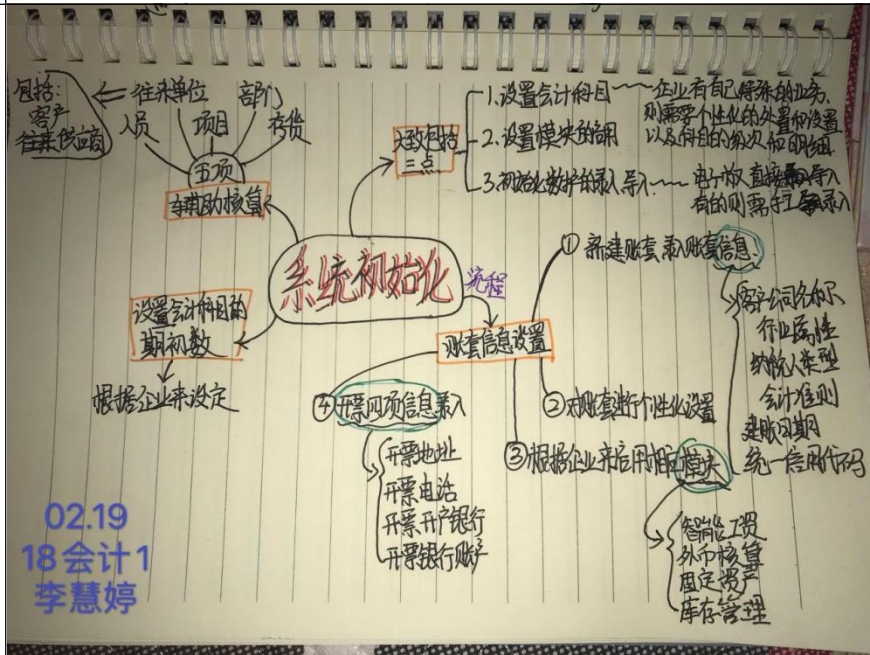 包括:
客户
往来供应商
往来单位
部门
人员
项目
存货
五项
辅助核算
大致包括
三点
1.设置会计科目
企业有自己特殊的业务,
则需要个性化的处置和设置
以及科目的级次和明细.
2.设置模块的启用
3.初始化数据的录入、导入
电子版直接导入
有的则需手工录入
系统初始化
流程
设置会计科目的
期初数
根据企业来设定
账套信息设置
① 新建账套,录入账套信息.
客户公司名称
行业属性
纳税人类型
会计准则
建账日期
统一信用代码
②对账套进行个性化设置
③根据企业来启用相应模块
智能工资
外币核算
固定资产
库存管理
④开票四项信息录入
开票地址
开票电话
开票开户银行
开票银行账户
02.19
18会计1
李慧婷